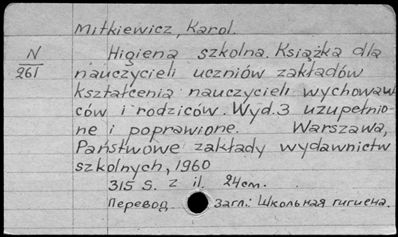 Mitkiewicz, Karol.
N
261
Higiena szkolna. Książka dla
nauczycieli uczniów zakładów
kształcenia nauczycieli wychowaw-
ców i rodziców. Wyd. 3 uzupełnio-
ne i poprawione. Warszawa,
Państwowe zakłady wydawnictw
szkolnych, 1960
315 S. z il. 24cm.
Перевод загл.: Школьная гигиена.